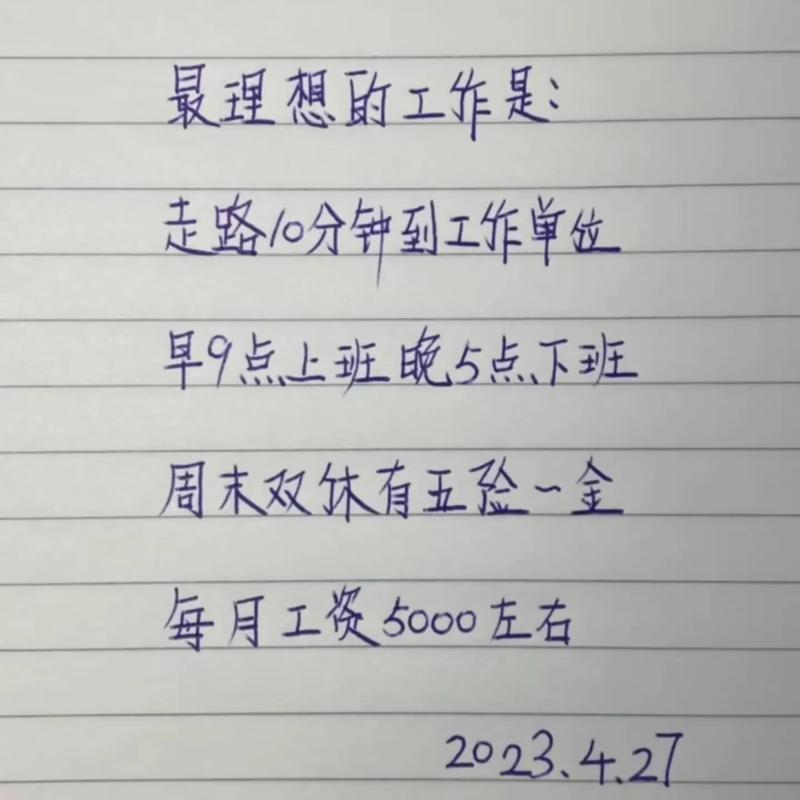 最理想的工作是:
走路10分钟到工作单位
早9点上班晚5点下班
周末双休有五险一金
每月工资5000左右
2023.4.27